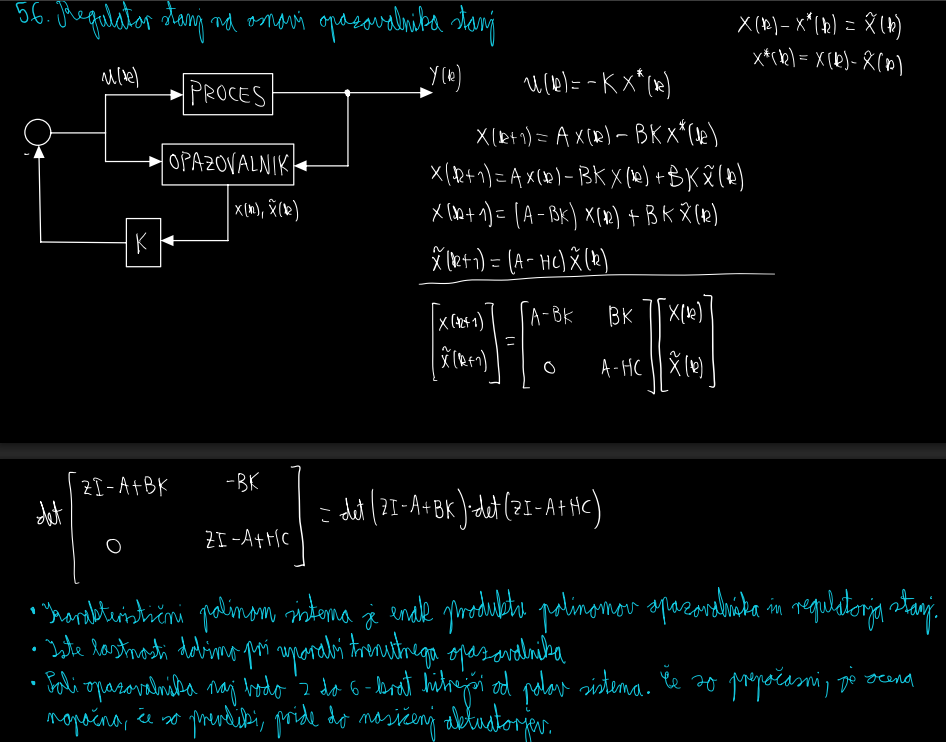 56. Regulator stanj na osnovi opazovalnika stanj
X(k) - X*(k) = X̃(k)
X*(k) = X(k) - X̃(k)
U(k)
PROCES
Y(k)
-
OPAZOVALNIK
X(k), X̃(k)
K
U(k) = -K X*(k)
X(k+1) = A X(k) - BK X*(k)
X(k+1) = A X(k) - BK X(k) + BK X̃(k)
X(k+1) = (A-BK) X(k) + BK X̃(k)
X̃(k+1) = (A-HC) X̃(k)
[X(k+1) X̃(k+1)] = [A-BK BK 0 A-HC] [X(k) X̃(k)]
det [zI-A+BK -BK 0 zI-A+HC] = det(zI-A+BK)·det(zI-A+HC)
• Karakteristični polinom sistema je enak produktu polinomov opazovalnika in regulatorja stanj.
• Iste lastnosti dobimo pri uporabi trenutnega opazovalnika
• Poli opazovalnika naj bodo 2 do 6-krat hitrejši od polov sistema. Če so prepočasni, je ocena
napačna, če so preveliki, pride do nasičenj aktuatorjev.